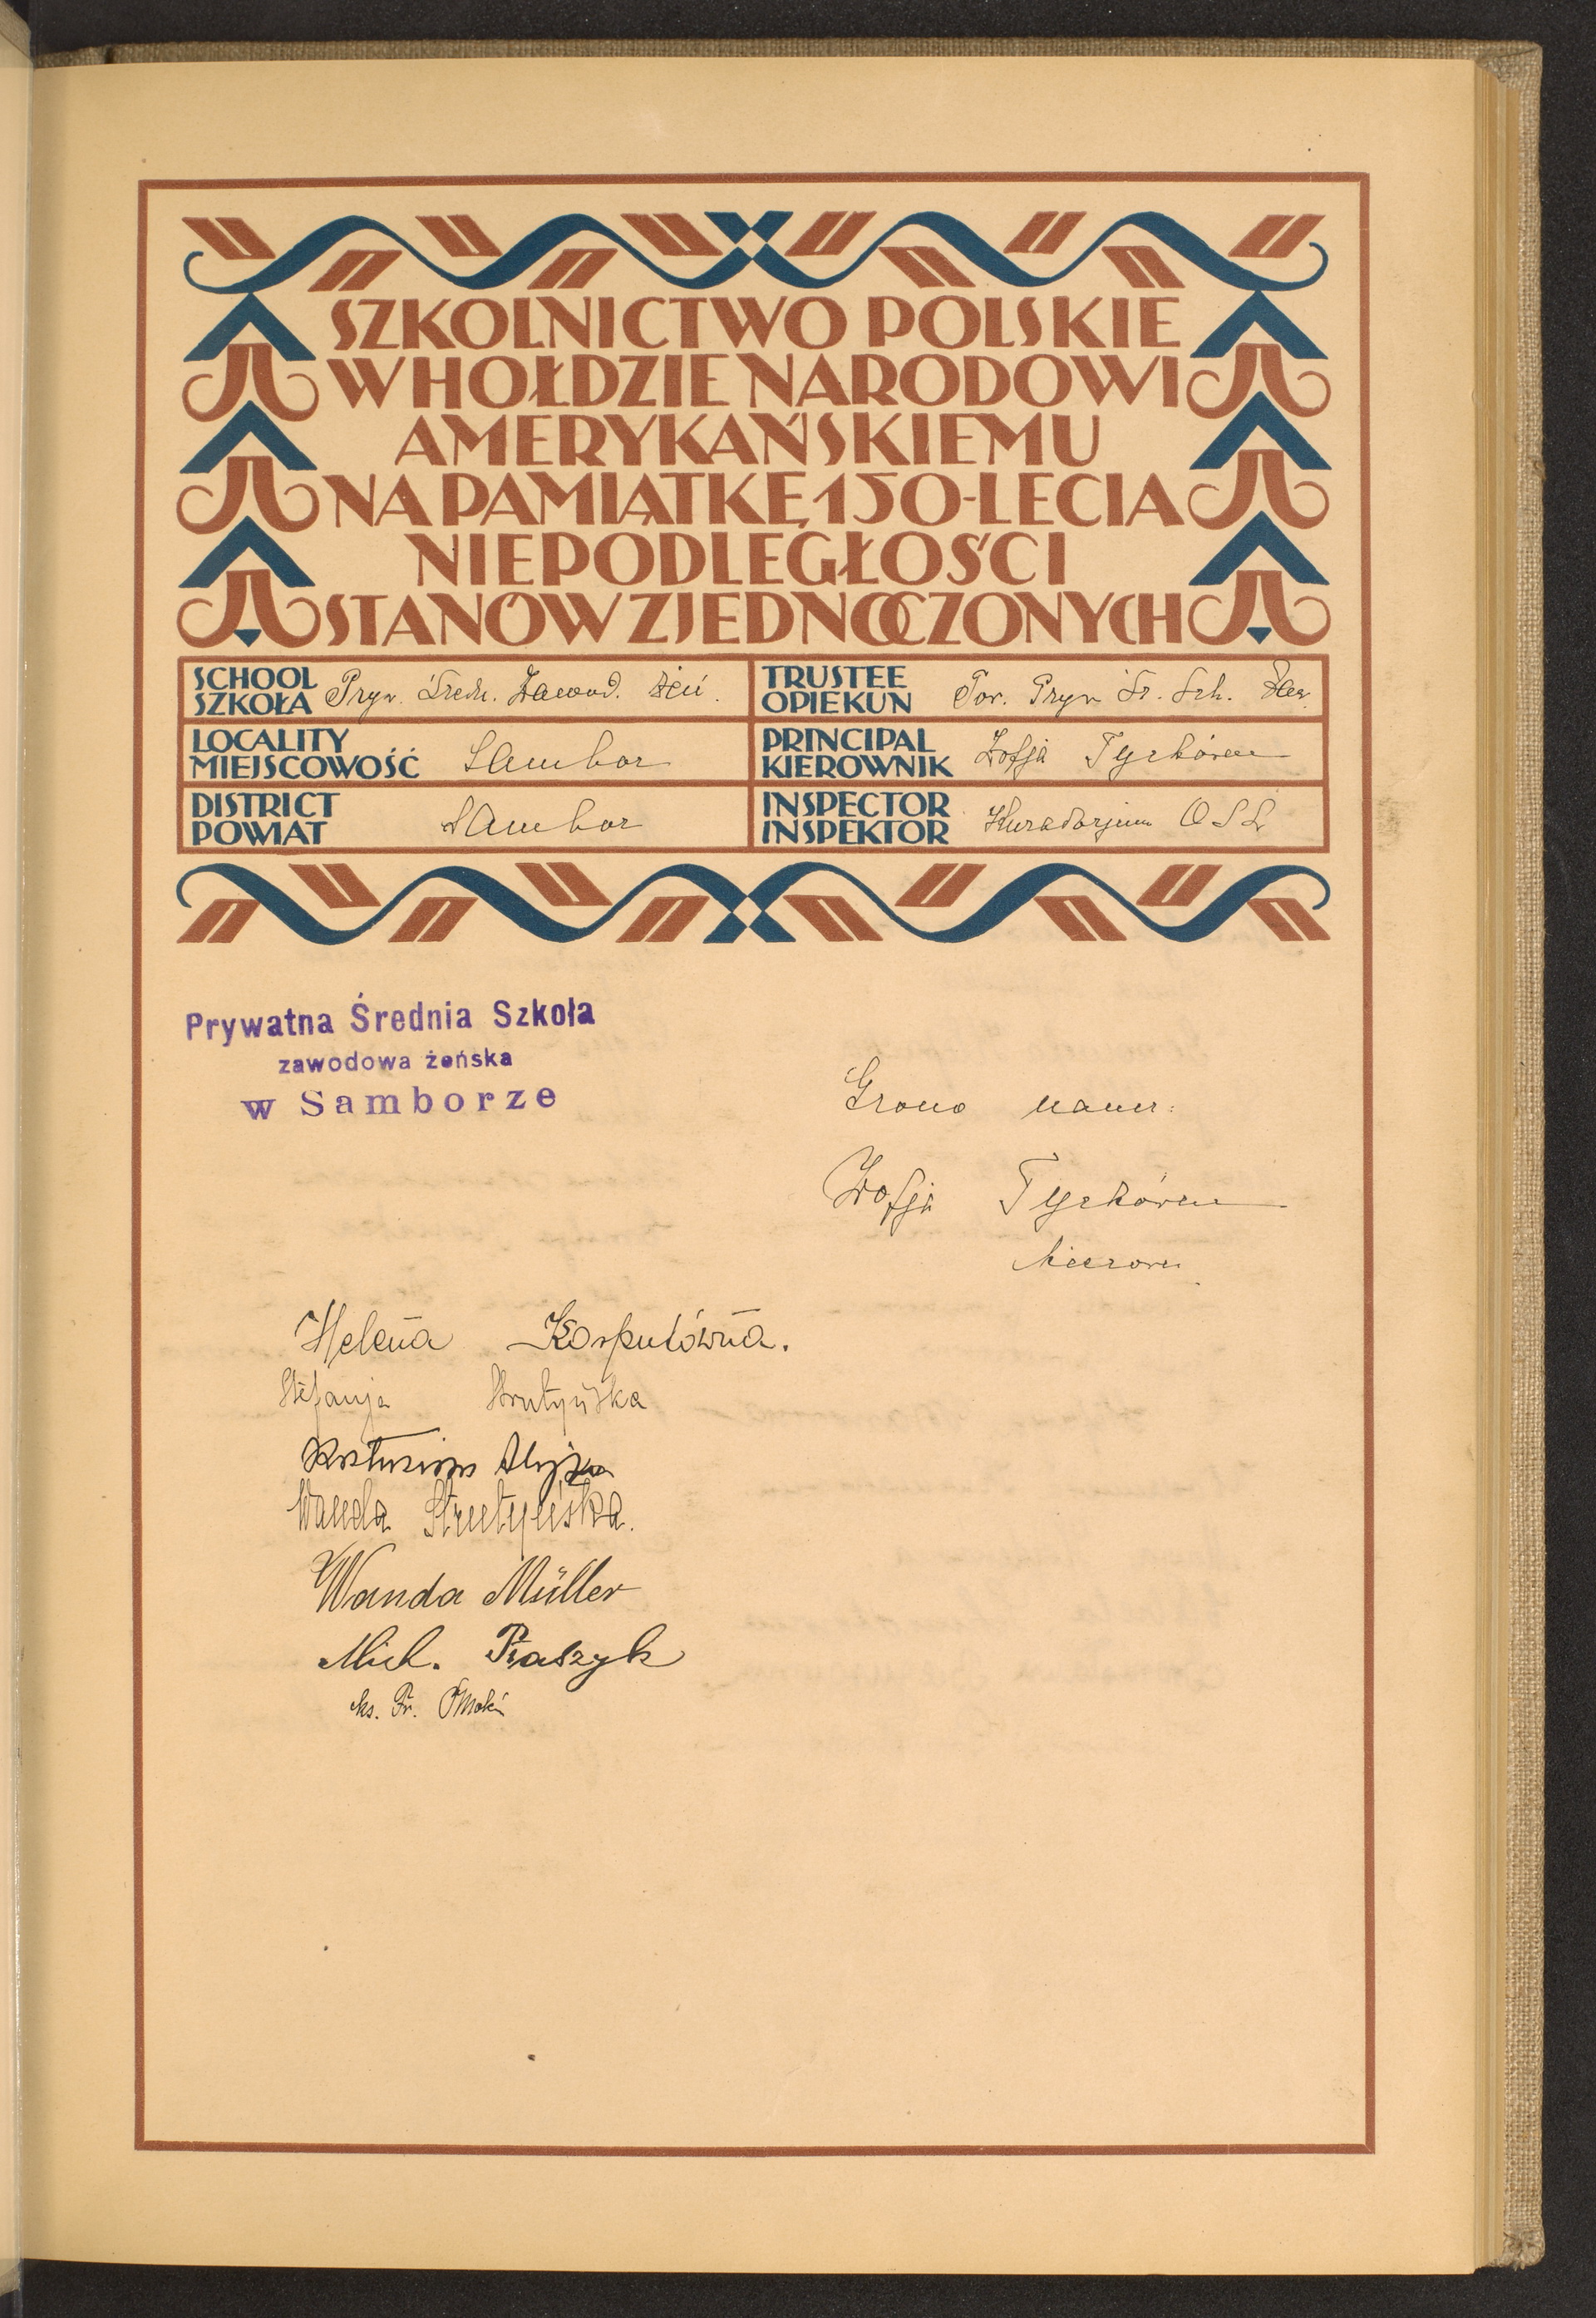 SZKOLNICTWO POLSKIE
W HOŁDZIE NARODOWI
AMERYKAŃSKIEMU
NA PAMIĄTKĘ 150-LECIA
NIEPODLEGŁOŚCI
STANÓW ZJEDNOCZONYCH
SCHOOL
SZKOŁA Pryw. Średn. Zawod. Żeń.
TRUSTEE
OPIEKUN Tow. Pryw Śr. Szk. Zaw.
LOCALITY
MIEJSCOWOŚĆ Sambor
PRINCIPAL
KIEROWNIK Zofja Tyrkówna
DISTRICT
POWIAT Sambor
INSPECTOR
INSPEKTOR Kuratorjum OSL
Prywatna Średnia Szkoła
zawodowa żeńska
w Samborze
Grono naucz:
Zofja Tyrkówna
kierown.
Helena Korputówna.
Stefanja Strutyńska
Alojza
Wanda Strutyńska.
Wanda Müller
Mich. Ptaszyk
ks. Fr.